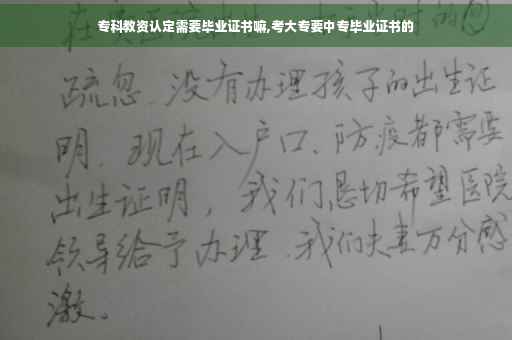 专科教资认定需要毕业证书嘛,考大专要中专毕业证书的
疏忽、没有办理孩子的出生证
明、现在入户口、防疫都需要
出生证明，我们恳切希望医院
领导给予办理、我们夫妻万分感
激。